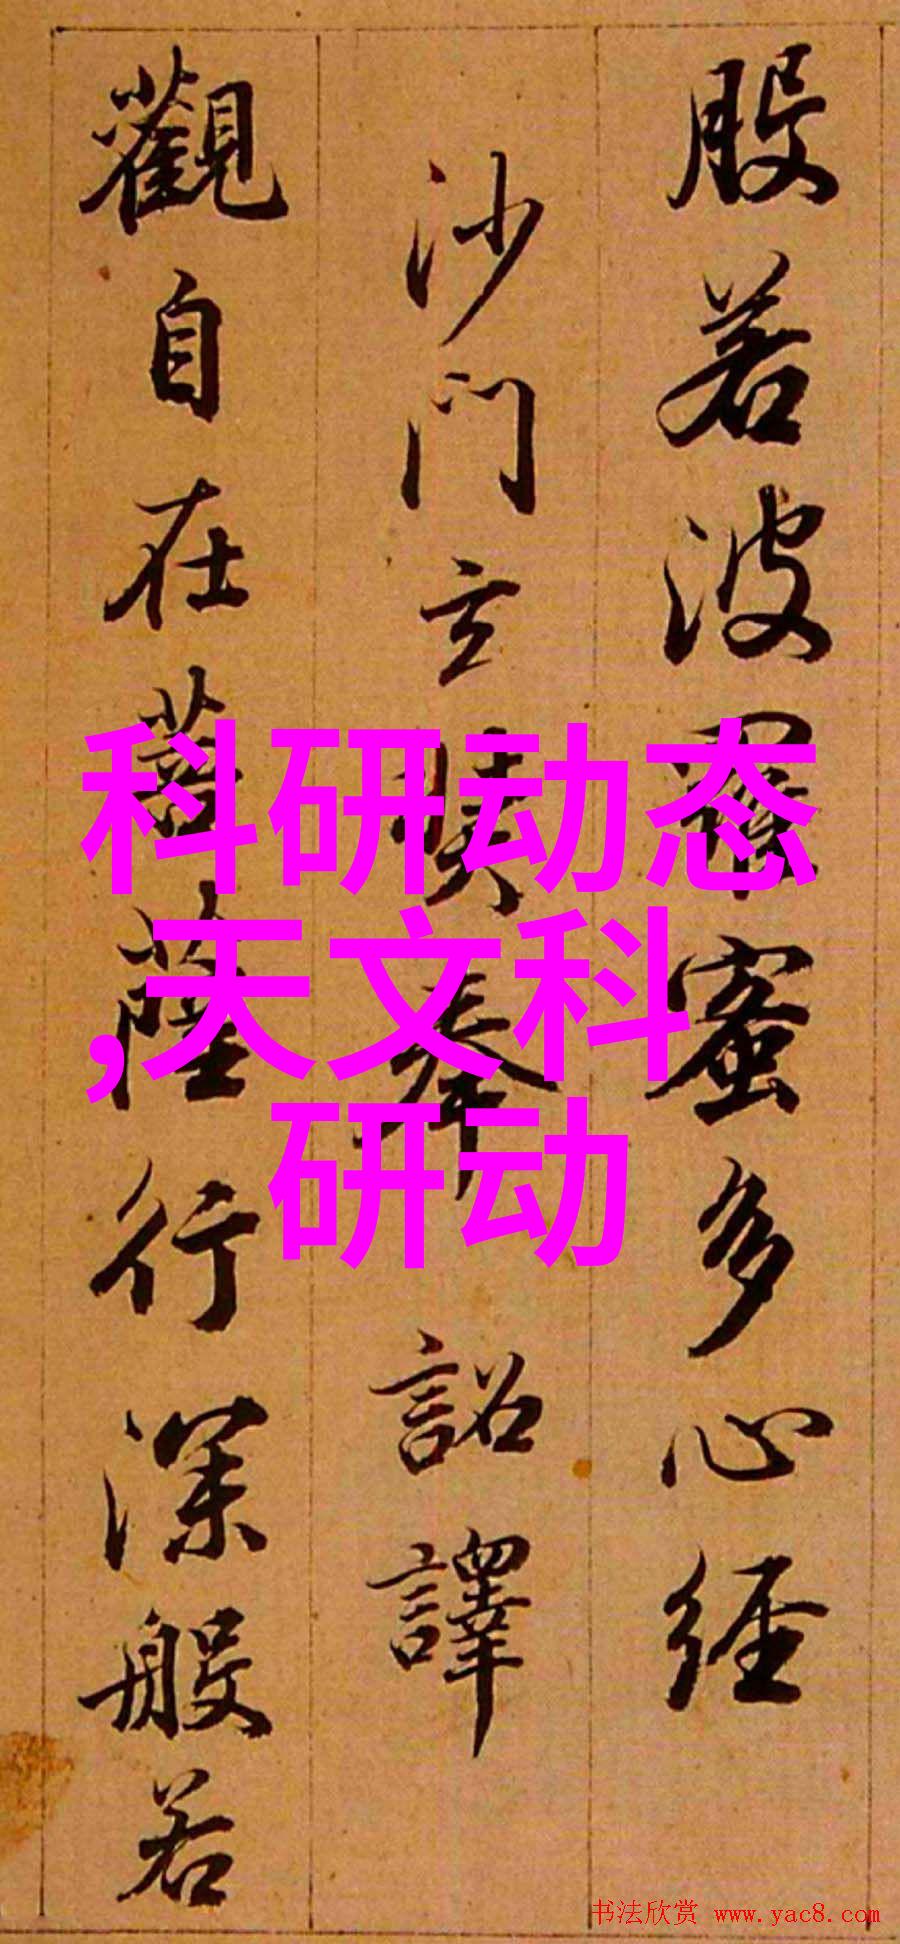 般若波羅蜜多心经
沙門玄奘奉 詔譯
觀自在菩薩行深般若
科研动态
,天文科
研动
书法欣赏 www.yac8.com